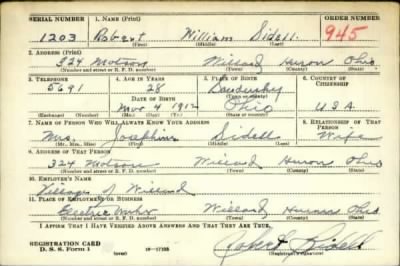 SERIAL NUMBER 1. NAME (Print) ORDER NUMBER
1203 Robert William Sidell 945
(First) (Middle) (Last)
2. ADDRESS (Print)
324 Motson Willard Huron Ohio
(Number and street or R. F. D. number) (Town) (County) (State)
3. TELEPHONE 4. AGE IN YEARS 5. PLACE OF BIRTH 6. COUNTRY OF CITIZENSHIP
5691 28 Sandusky
DATE OF BIRTH (Town or county)
Nov 4 1912 Ohio U.S.A
(Exchange) (Number) (Mo.) (Day) (Yr.) (State or country)
7. NAME OF PERSON WHO WILL ALWAYS KNOW YOUR ADDRESS 8. RELATIONSHIP OF THAT PERSON
Mrs. Josephine Sidell Wife
(Mr., Mrs., Miss) (First) (Middle) (Last)
9. ADDRESS OF THAT PERSON
324 Motson Willard Huron Ohio
(Number and street or R. F. D. number) (Town) (County) (State)
10. EMPLOYER'S NAME
Village of Willard
11. PLACE OF EMPLOYMENT OR BUSINESS
Electric Willard Huron Ohio
(Number and street or R. F. D. number) (Town) (County) (State)
I AFFIRM THAT I HAVE VERIFIED ABOVE ANSWERS AND THAT THEY ARE TRUE.
REGISTRATION CARD
D. S. S. Form 1 Robert Sidell
(over) 16—17105 (Registrant's signature)